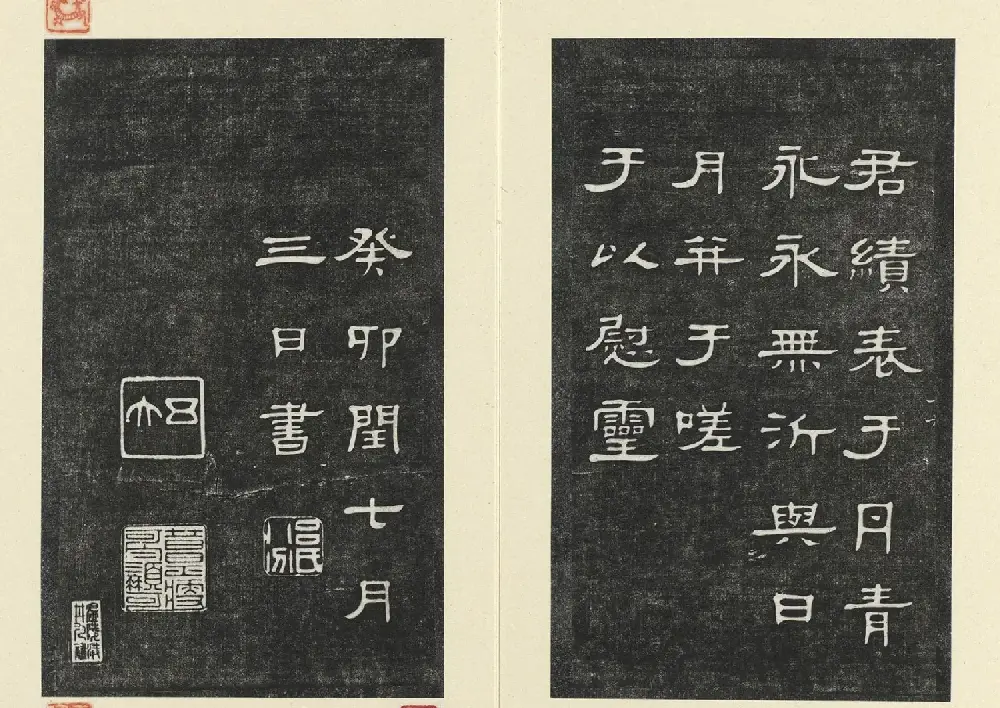 君績表于丹青
永永無沂與日
月并于嗟
于以慰靈
癸卯閏七月
三日書